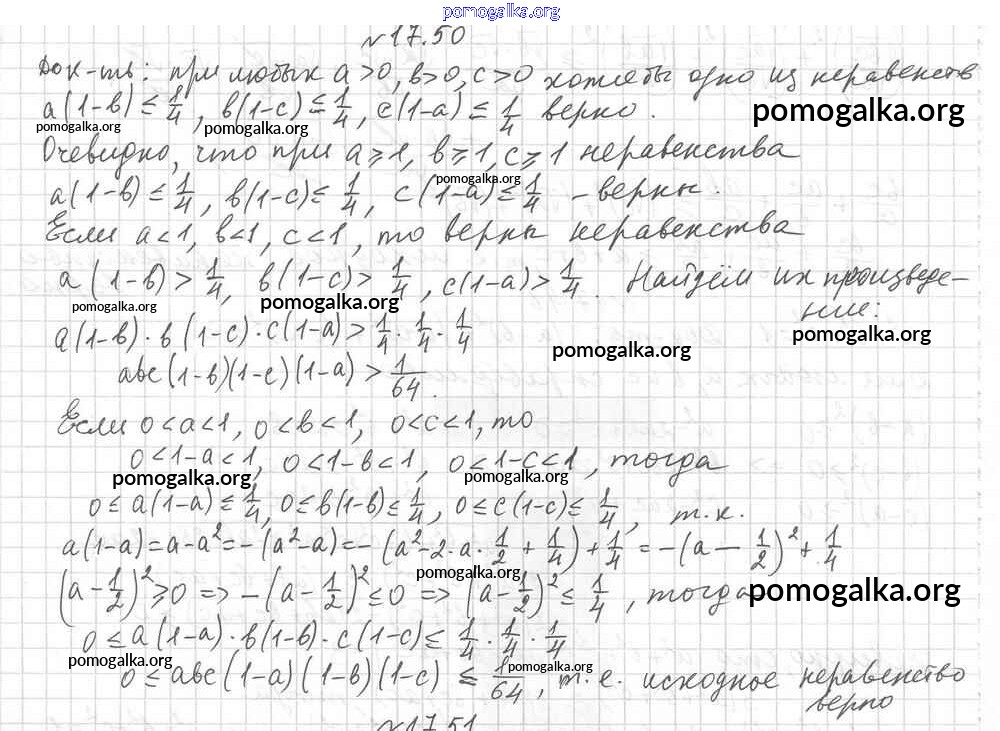 pomogalka.org
№17.50
Док-ть: при любых a>0, b>0, c>0 хотя бы одно из неравенств
a(1-b) ≤ 1/4, b(1-c) ≤ 1/4, c(1-a) ≤ 1/4 верно.
pomogalka.org
pomogalka.org pomogalka.org
Очевидно, что при a≥1, b≥1, c≥1 неравенства
pomogalka.org
a(1-b) ≤ 1/4, b(1-c) ≤ 1/4, c(1-a) ≤ 1/4 – верны.
Если a<1, b<1, c<1, то верны неравенства
a(1-b) > 1/4, b(1-c) > 1/4, c(1-a) > 1/4. Найдём их произведе-
ние:
pomogalka.org pomogalka.org
pomogalka.org
a(1-b)·b(1-c)·c(1-a) > 1/4 · 1/4 · 1/4
pomogalka.org
abc(1-b)(1-c)(1-a) > 1/64.
Если 0<a<1, 0<b<1, 0<c<1, то
0<1-a<1, 0<1-b<1, 0<1-c<1, тогда
pomogalka.org pomogalka.org
0≤a(1-a)≤1/4, 0≤b(1-b)≤1/4, 0≤c(1-c)≤1/4, т.к.
a(1-a)=a-a²=-(a²-a)=-(a²-2·a·1/2+1/4)+1/4=-(a-1/2)²+1/4
pomogalka.org
(a-1/2)²≥0 => -(a-1/2)²≤0 => (a-1/2)²≤1/4, тогда
pomogalka.org
0≤a(1-a)·b(1-b)·c(1-c)≤1/4·1/4·1/4
pomogalka.org pomogalka.org
0≤abc(1-a)(1-b)(1-c)≤1/64, т.е. исходное неравенство
верно
№17.51